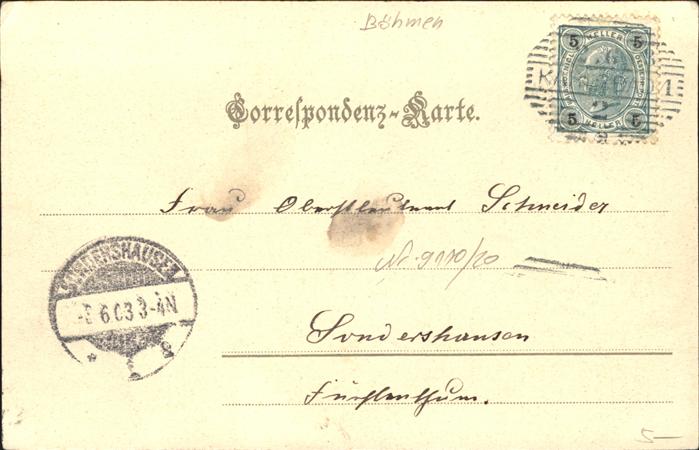 Böhmen
5 HELLER 5
5 HELLER 5
1
Correspondenz-Karte.
Frau Oberstleutnant Schneider
Nr. 9110/20
SONDERSHAUSEN
6 03 3-4N
* 1 *
Sondershausen
Fürstenthum.
5-